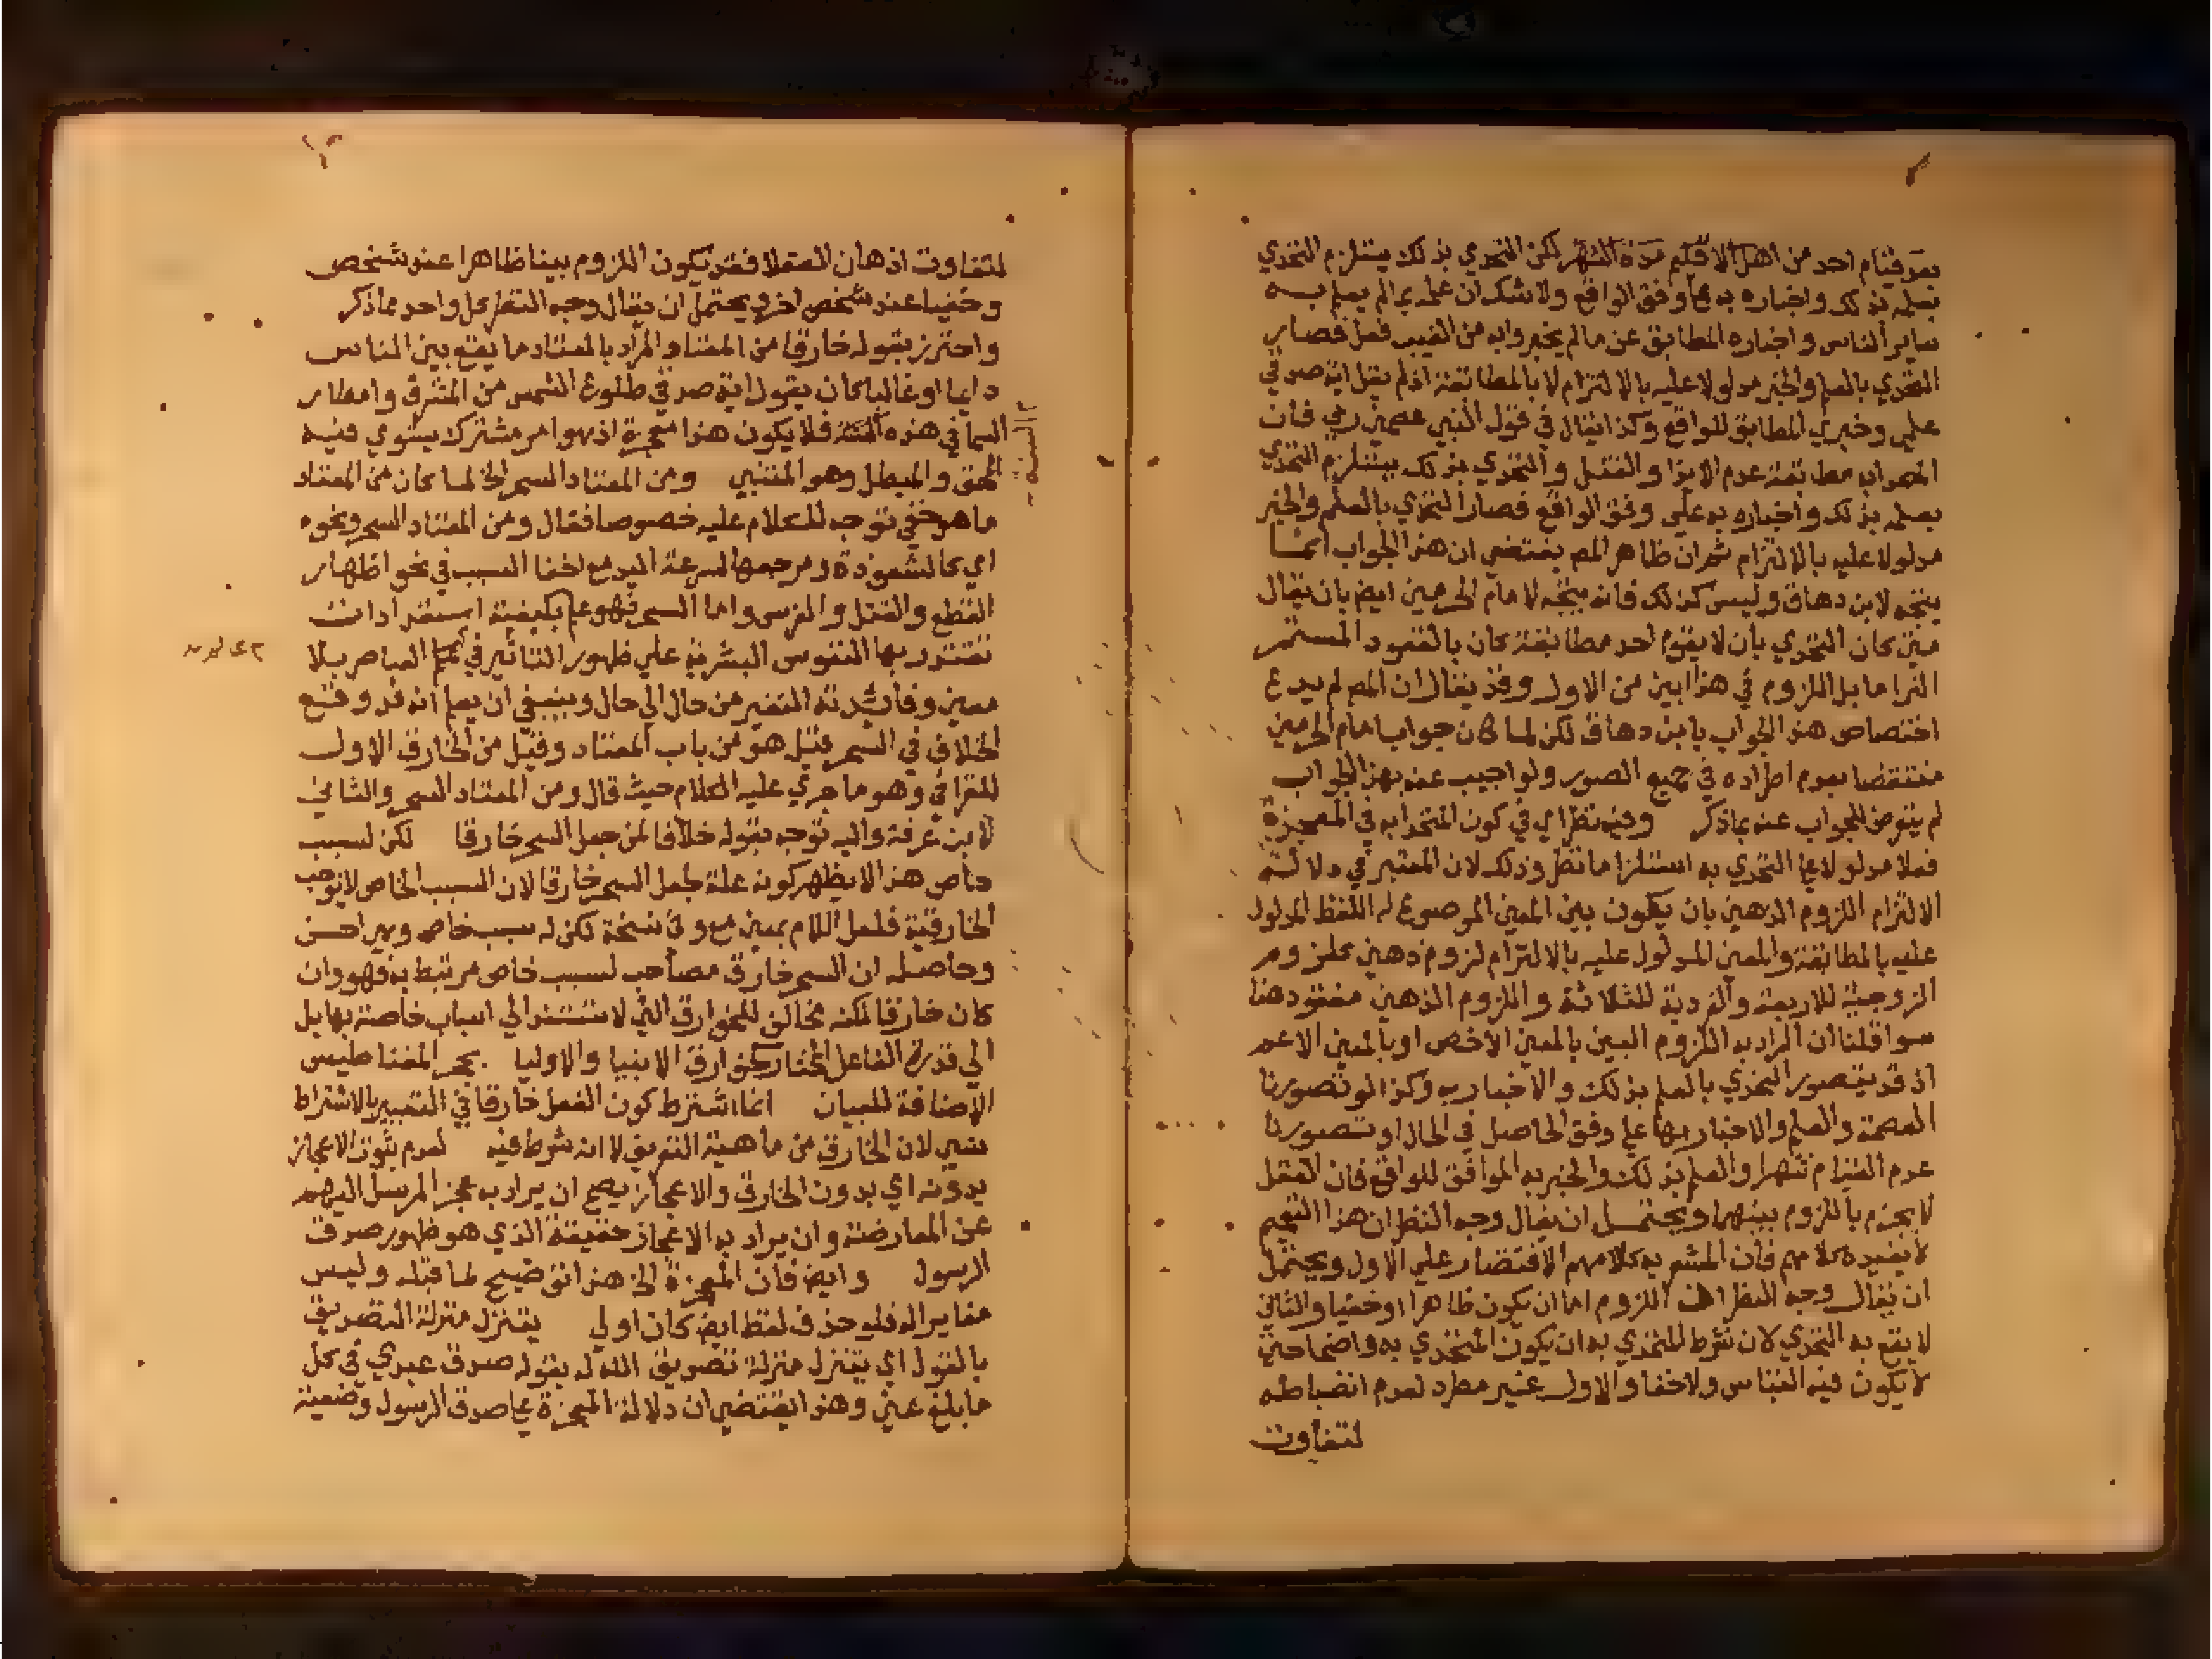 بعدم قيام احد من اهل الاقليم مدة الشهر لكن التحدي بذلك يستلزم التحدي
بعلمه بذلك واخباره به علي وفق الواقع ولا شك ان علمه بما لم يعلم به
ساير الناس واخباره المطابق عن ما لم يخبروا به من الغيب فعل فصار
التحدي بالعلم والخبر مدلولا عليه بالالتزام لا بالمطابقة اذ لم يقل اية صدقي
علمي وخبري المطابق للواقع وكذا يقال في قول النبي عصمني ربي فان
المتحدا به مطابقة عدم الايذا والقتل والتحدي بذلك يستلزم التحدي
بعلمه بذلك واخباره به علي وفق الواقع فصار التحدي بالعلم والخبر
مدلولا عليه بالالتزام ثم ان ظاهر المص يقتضي ان هذا الجواب انما
يتجه لابن دهاق وليس كذلك فانه يتجه لامام الحرمين ايض بان يقال
متي كان التحدي بان لا يقوم احد مطابقة كان بالقعود المستمر
التزاما بل اللزوم في هذا ابين من الاول وقد يقال ان المص لم يدع
اختصاص هذا الجواب بابن دهاق لكن لما كان جواب امام الحرمين
منتقضا بعدم اطراده في جميع الصور ولو اجيب عنه بهذا الجواب
لم يتعرض للجواب عنه بما ذكر وفيه نظر اي في كون المتحدا به في المعجزة
فعلا مدلولا علي التحدي به استلزاما نظر وذلك لان المعتبر في دلالة
الالتزام اللزوم الذهني بان يكون بين المعني الموضوع له اللفظ المدلول
عليه بالمطابقة والمعني المدلول عليه بالالتزام لزوم ذهني كلزوم
الزوجية للاربعة والفردية للثلاثة واللزوم الذهني مفقود هنا
سوا قلنا ان المراد به اللزوم البين بالمعني الاخص او بالمعني الاعم
اذ قد يتصور التحدي بالعلم بذلك والاخبار به وكذا لو تصورنا
العصمة والعلم والاخبار بها علي وفق الحاصل في الحال او تصورنا
عدم القيام شهرا والعلم بذلك والخبر به الموافق للواقع فان العقل
لا يجزم باللزوم بينهما ويحتمل ان يقال وجه النظر ان هذا التعميم
لا يفيده كلامهم فان المشعر به كلامهم الاقتصار علي الاول ويحتمل
ان يقال وجه النظر ان اللزوم اما ان يكون ظاهرا او خفيا والثاني
لا يقع به التحدي لان شرط المتحدي به ان يكون المتحدي به واضحا حتي
لا يكون فيه التباس ولا خفا والاول غير مطرد لعدم انضباطه
لتفاوت
لتفاوت اذهان العقلا فقد يكون اللزوم بينا ظاهرا عند شخص
وخفيا عند شخص اخر ويحتمل ان يقال وجه النظر كل واحد مما ذكر
واحترز بقوله خارقا من المعتاد والمراد بالمعتاد ما يقع بين الناس
دايما او غالبا كان يقول اية صدقي طلوع الشمس من المشرق وامطار
السما في هذه السنة فلا يكون هذا معجزة اذ هو امر مشترك يستوي فيه
المحق والمبطل وهو المتنبي ومن المعتاد السحر الخ لما كان من المعتاد
ما هو خفي توجه للكلام عليه خصوصا فقال ومن المعتاد السحر ونحوه
اي كالشعوذة ومرجعها لسرعة اليد مع اخفا السبب في نحو اظهار
القطع والقتل والفرس واما السحر فهو علم بكيفية استعدادات
تقتدر بها النفوس البشرية علي ظهور التاثير في عالم العناصر بلا
معين وفايدته التغير من حال الي حال وينبغي ان يعلم انه قد وقع
الخلاف في السحر فقيل هو من باب المعتاد وقيل من الخارق الاول
للقرافي وهو ما جري عليه الكلام حيث قال ومن المعتاد السحر والثاني
لابن عرفة واليه توجه بقوله خلافا لمن جعل السحر خارقا لكن لسبب
خاص هذا لا يظهر كونه علة لجعل السحر خارقا لان السبب الخاص لا يوجب
الخارقية فلعل اللام بمعني مع وفي نسخة لكن له سبب خاص وهي احسن
وحاصله ان السحر خارق مصاحب لسبب خاص مرتبط به فهو وان
كان خارقا لكنه مخالف للخوارق التي لا تستند الي اسباب خاصة بها بل
الي قدرة الفاعل المختار كخوارق الانبيا والاوليا بحجر المغناطيس
الاضافة للبيان انما اشترط كون الفعل خارقا في التعبير بالاشتراط
شي لان الخارق من ماهية التعريف لا انه شرط فيه لعدم ثبوت الاعجاز
بدونه اي بدون الخارق والاعجاز يصح ان يراد به عجز المرسل اليهم
عن المعارضة وان يراد به الاعجاز حقيقة الذي هو ظهور صدق
الرسول وايض فان المعجزة الخ هذا توضيح لما قبله وليس
مغايرا له فلو حذف لفظ ايض كان اولي يتنزل منزلة التصديق
بالقول اي يتنزل منزلة تصديق الله له بقوله صدق عبدي في كل
ما بلغ عني وهذا يقتضي ان دلالة المعجزة علي صدق الرسول وضعية